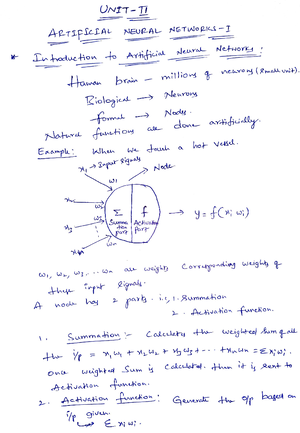 UNIT-II
ARTIFICIAL NEURAL NETWORKS-I
* Introduction to Artificial Neural Networks:
Human brain - millions of neurons (small unit).
Biological → Neurons
formal → Nodes.
Nature functions are done artificially.
Example: When we touch a hot vessel.
x₁ → Input signals
Node
w₁
x₂
w₂
x₃
w₃
xₙ
wₙ
Σ f
Summation part
Activation part
→ y = f(xᵢ wᵢ)
w₁, w₂, w₃, ... wₙ are weights corresponding weights of
these input signals.
A node has 2 parts. i.e., 1. Summation
2. Activation function.
1. Summation :- Calculate the weighted sum of all
the i/p = x₁w₁ + x₂w₂ + x₃w₃ + ... + xₙwₙ = Σxᵢwᵢ.
Once weighted sum is calculated. then it is sent to
Activation function.
2. Activation function: Generate the o/p based on
i/p given.
↳ Σxᵢwᵢ.